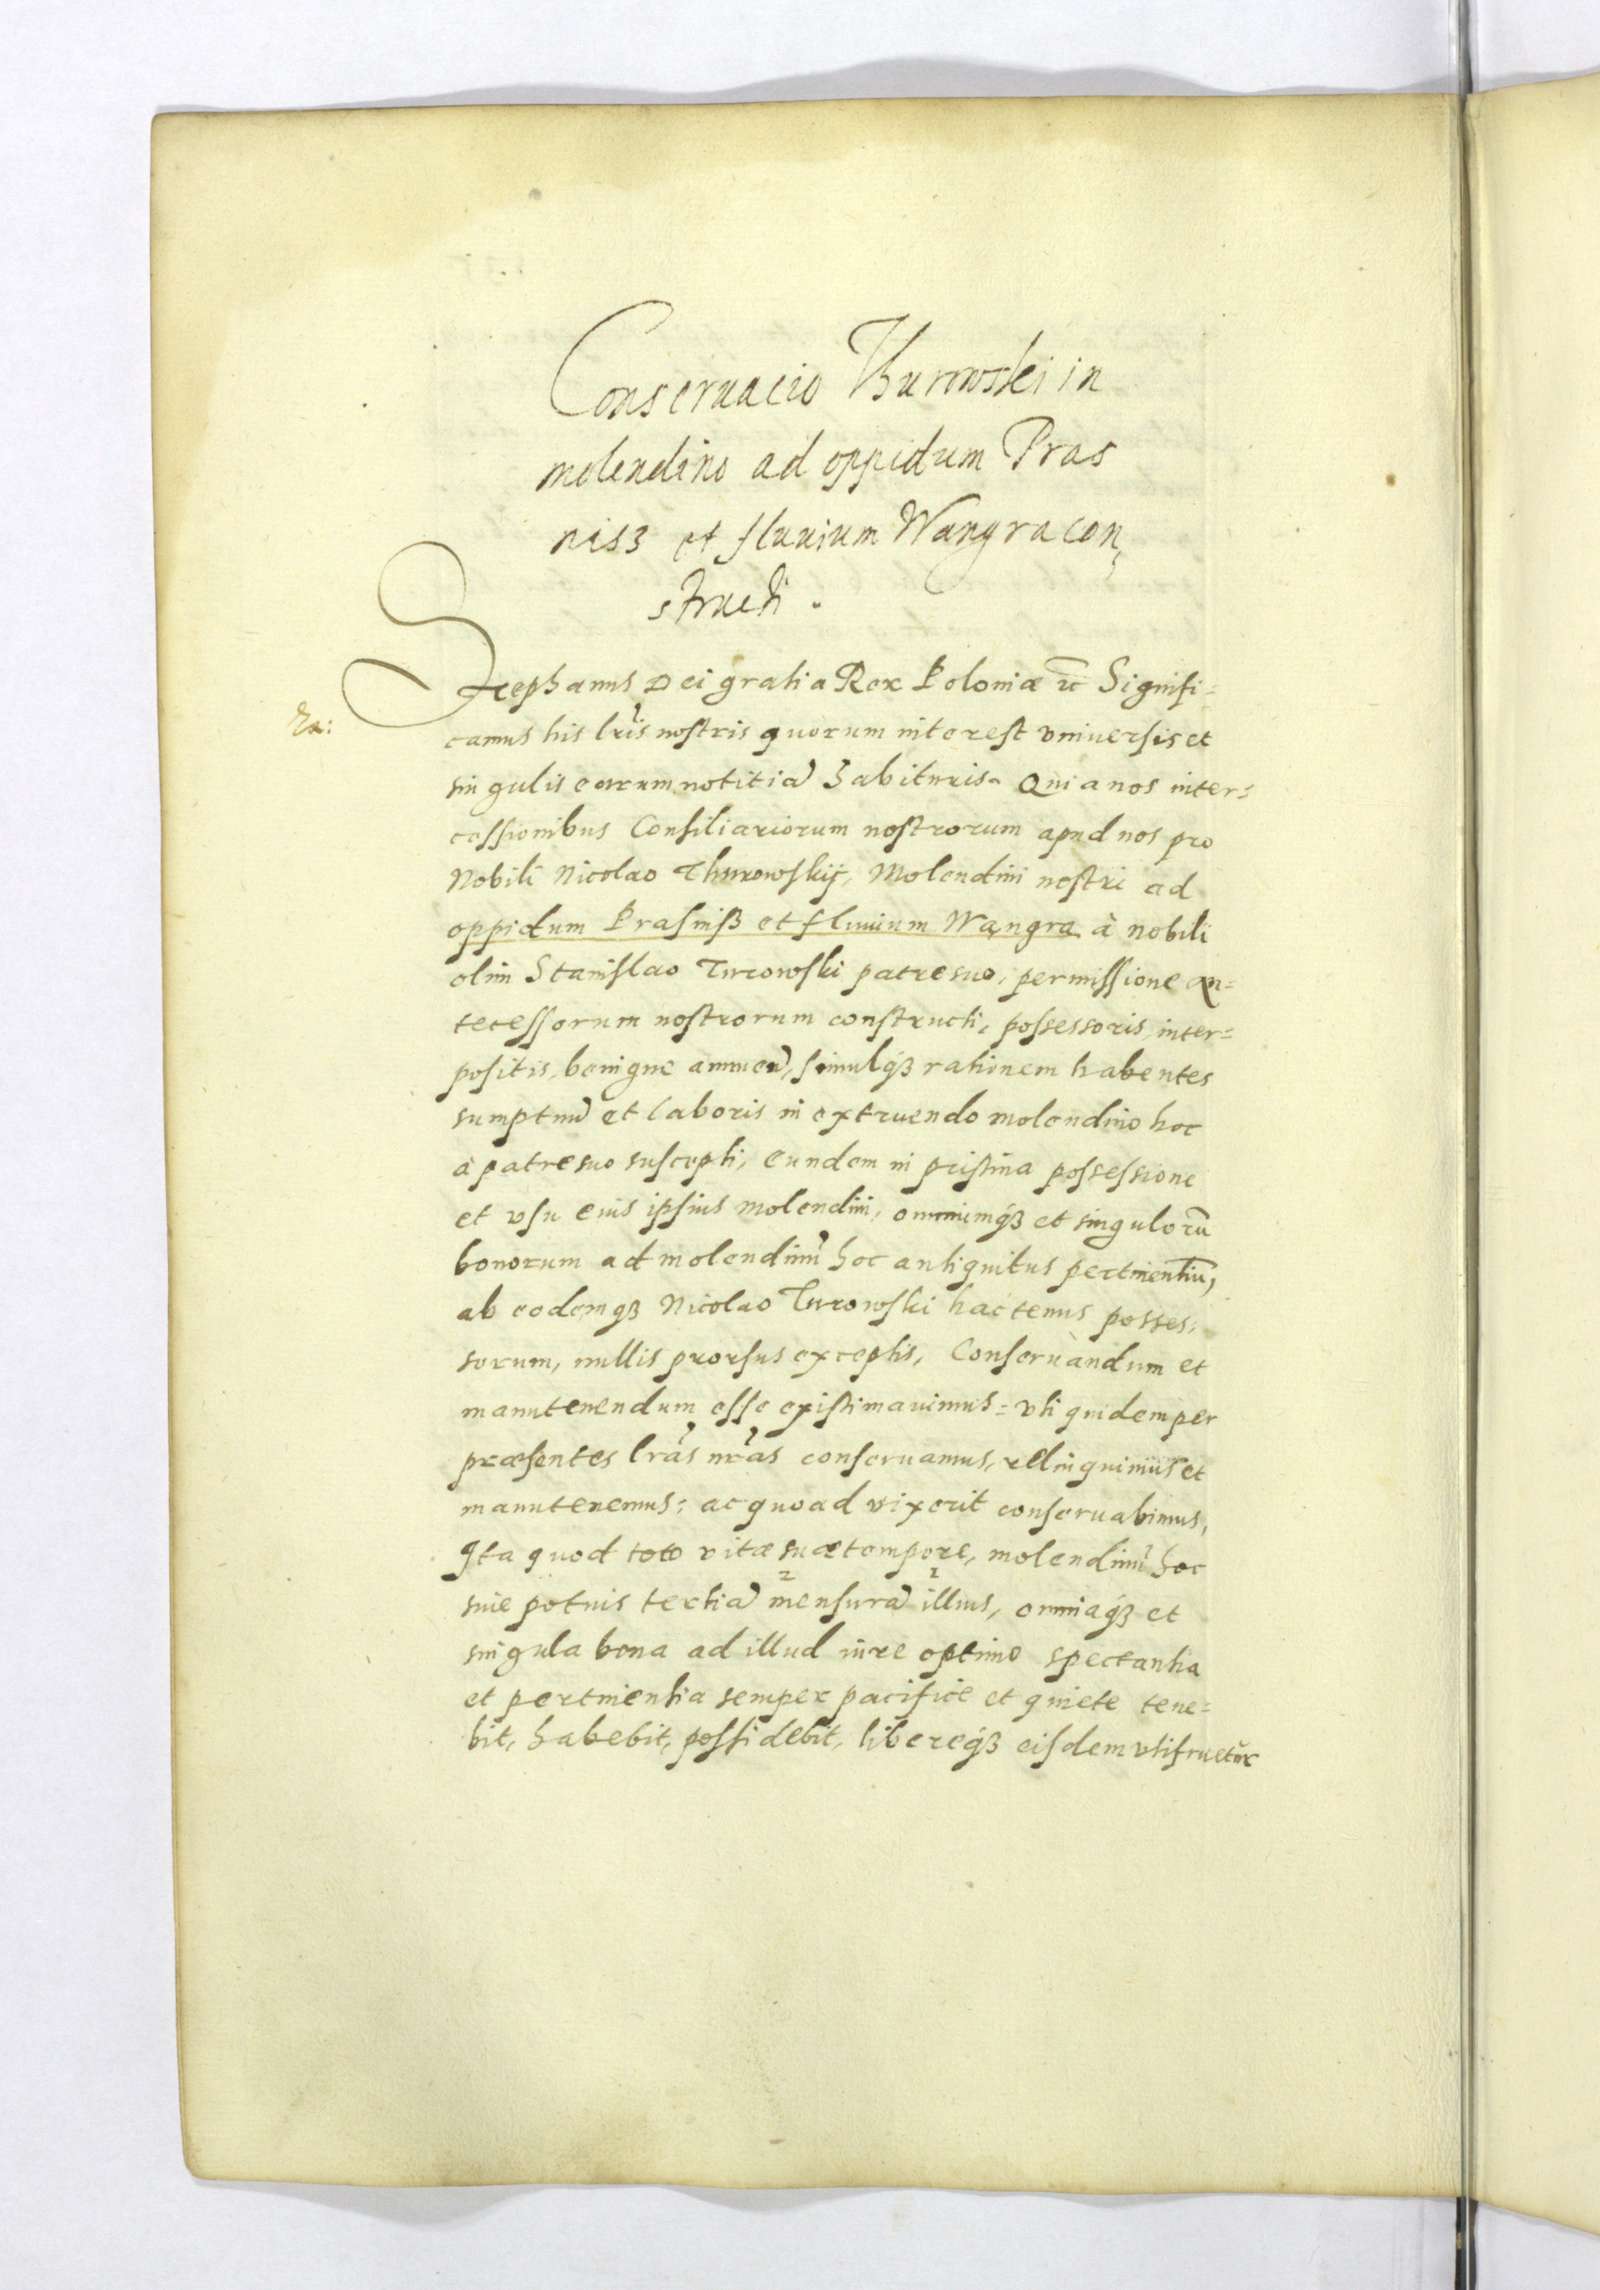 Conseruacio Thurowski in
molendino ad oppidum Pras
nisz et fluuium Wangra con⸗
structi.
Stephanus Dei gratia Rex Poloniæ etc Signifi⸗
camus his lris nostris quorum interest vniuersis et
singulis earum notitiã habituris. Quia nos inter⸗
cessionibus Consiliariorum nostrorum apud nos pro
Nobili Nicolao Thurowskij, Molendini nostri ad
oppidum Prasnisz et fluuium Wangra à nobili
olim Stanislao Turowski patre suo, permissione an⸗
tecessorum nostrorum constructi, possessoris inter⸗
positis, benigne annuen̄, simulq́ꝫ rationem habentes
sumptuū et laboris in extruendo molendino hoc
à patre suo suscepti, eundem in pristina possessione
et vsu eius ipsius molendini, omniumq́ꝫ et singulorū
bonorum ad molendinū hoc antiquitus pertinentiū,
ab eodemqꝫ Nicolao Turowski hactenus posses⸗
sorum, nullis prorsus exceptis, Conseruandum et
manutenendum esse existimauimus⸗ vti quidem per
præsentes lras nras conseruamus, relinquimus et
manutenemus: ac quoad vixerit conseruabimus,
Ita quod toto vitæ suæ tempore, molendinū hoc
siue potius tertiã mensurã illius, omniaq́ꝫ et
singula bona ad illud iure optimo spectantia
et pertinentia semper pacifice et quiete tene⸗
bit, habebit, possidebit, libereq́ꝫ eisdem vtifruetur